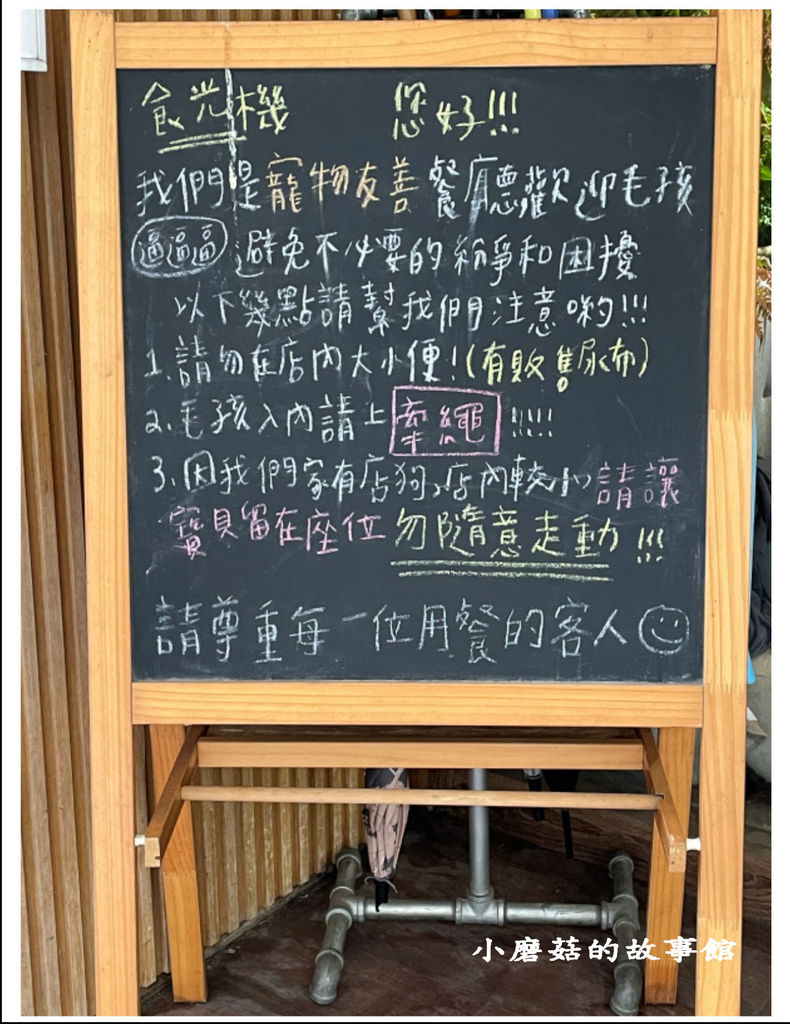 食光機 您好!!!
我們是寵物友善餐廳歡迎毛孩
逼逼逼 避免不必要的紛爭和困擾
以下幾點請幫我們注意喲!!!
1.請勿在店內大小便!(有販售尿布)
2.毛孩入內請上牽繩!!!!
3.因我們家有店狗,店內較小請讓
寶貝留在座位勿隨意走動!!!
請尊重每一位用餐的客人
小磨菇的故事館